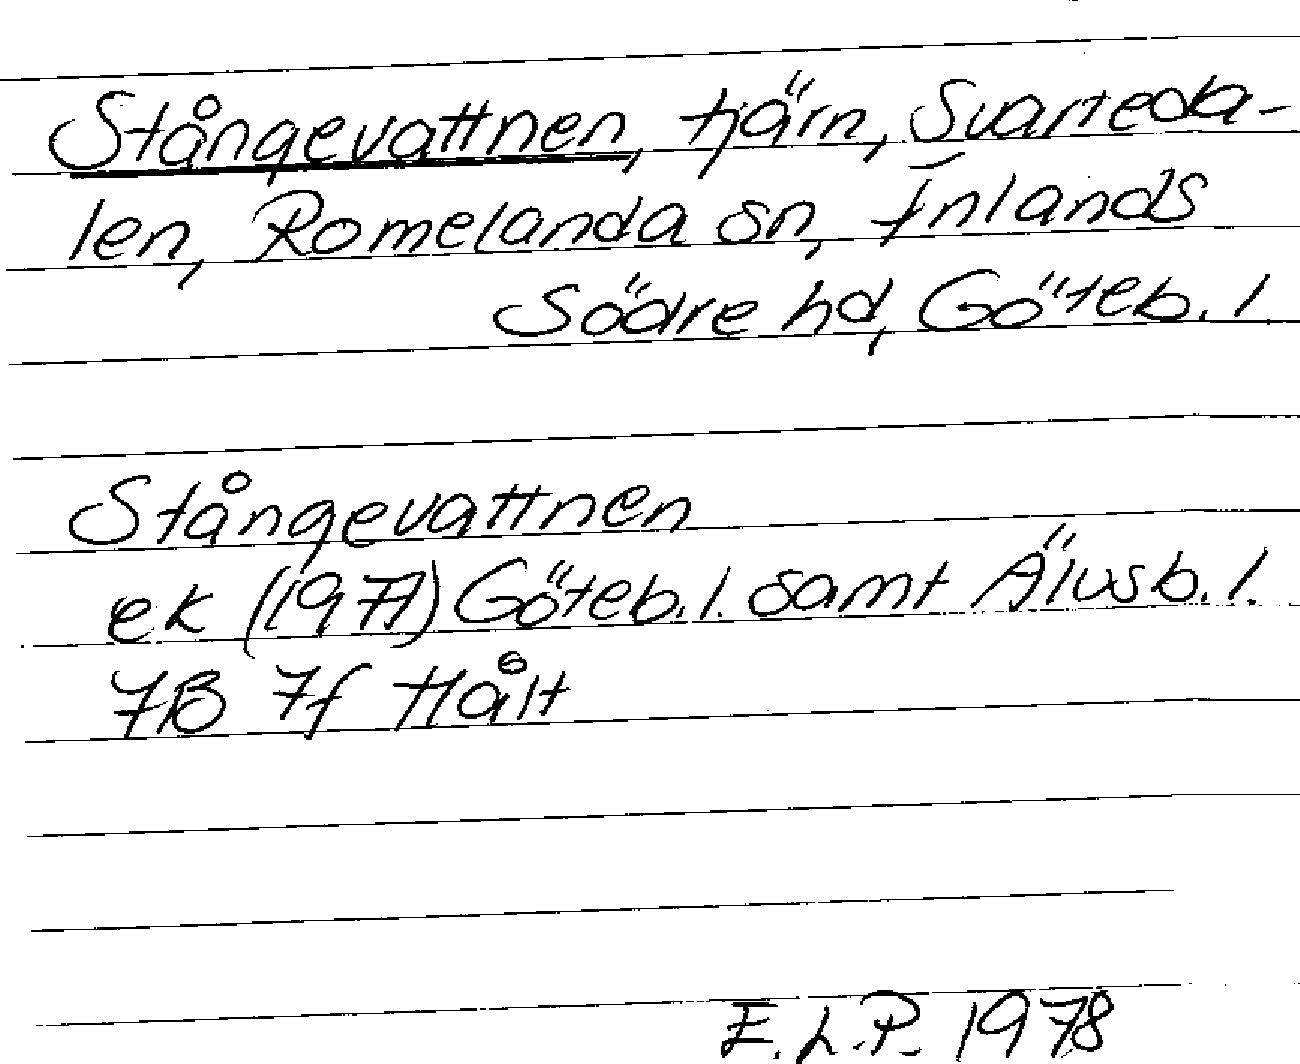 Stångevattnen, tjärn, Svarteda-
len, Romelanda sn, Inlands
Södre hd, Göteb. l.
Stångevattnen
ek (1977) Göteb. l. samt Älvsb. l.
7B 7f Hålt
E. L. P. 1978